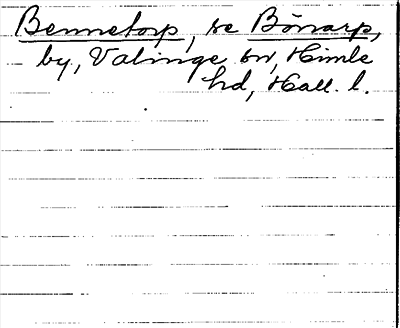 Bennetorp, se Bönarp,
by, Valinge sn, Himle
hd, Hall. l.